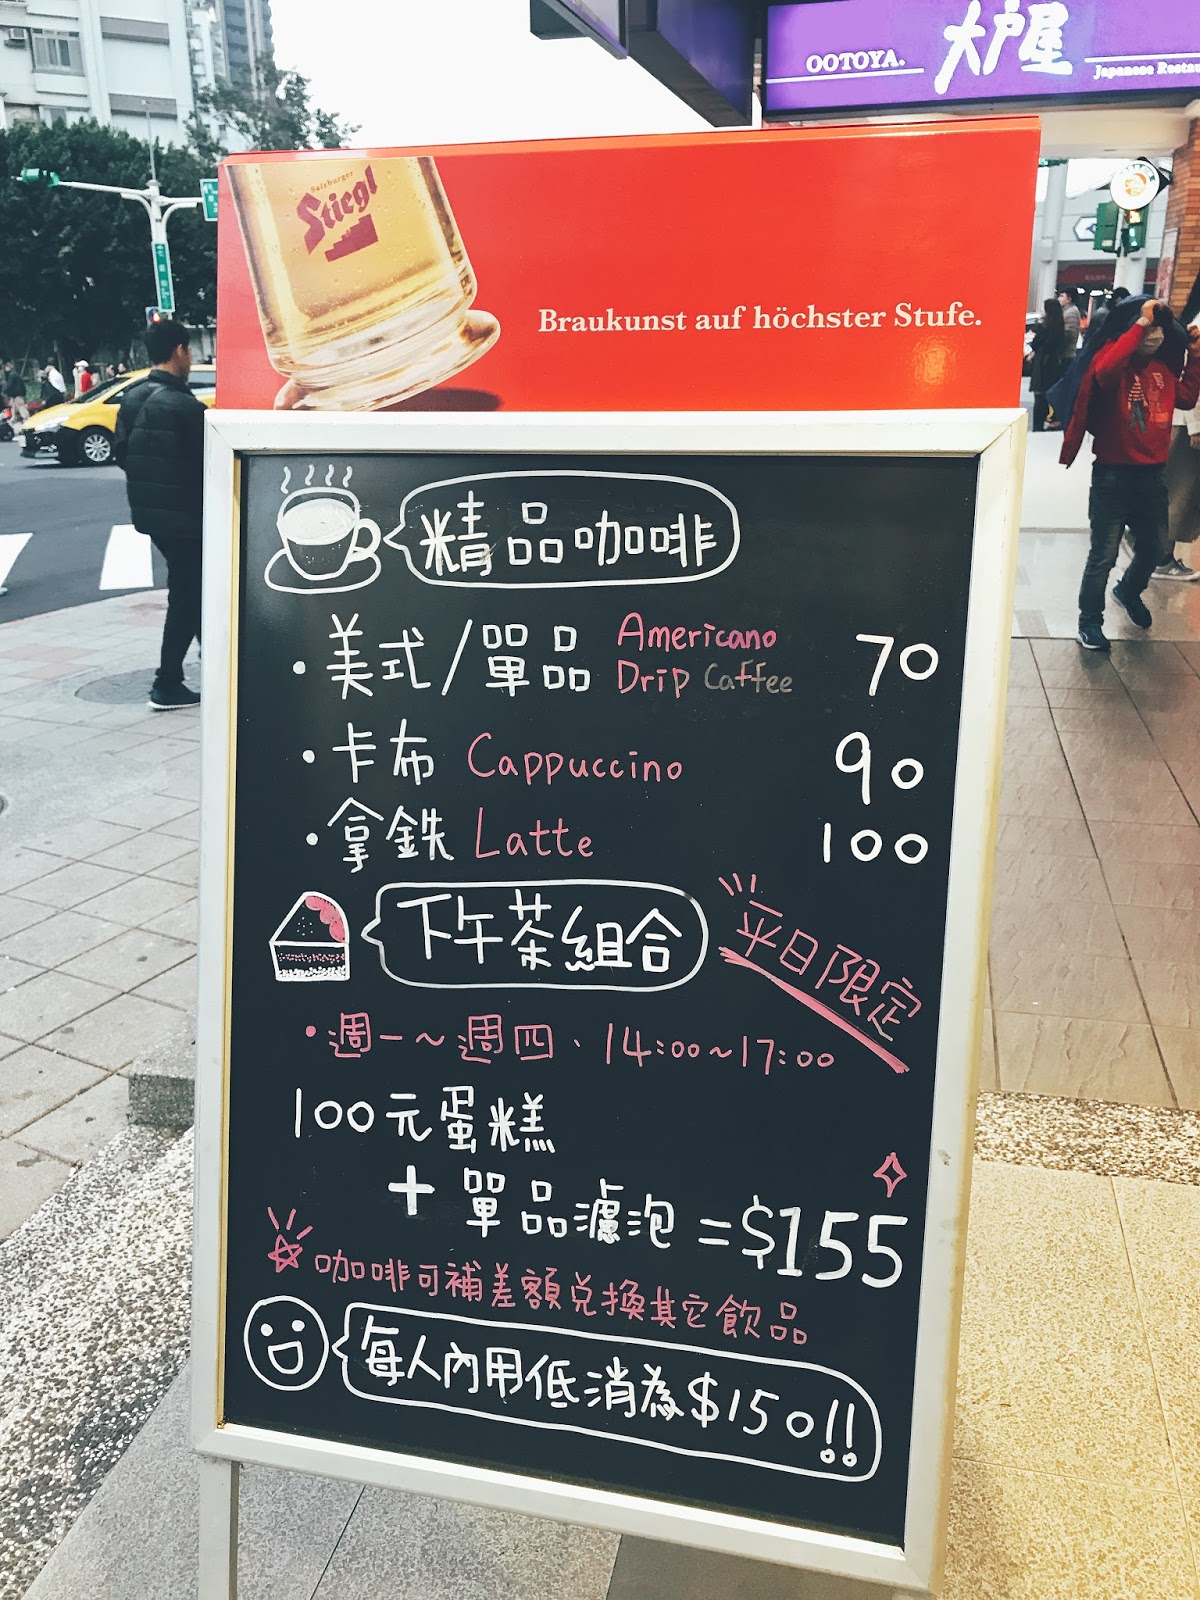 OOTOYA. 大戸屋
Salzburger
Stiegl
Braukunst auf höchster Stufe.
精品咖啡
・美式/單品 Americano Drip Caffee 70
・卡布 Cappuccino 90
・拿鐵 Latte 100
下午茶組合
平日限定
・週一～週四、14:00~17:00
100元蛋糕
+ 單品濾泡 = $155
☆咖啡可補差額兌換其它飲品
每人內用低消為$150!!